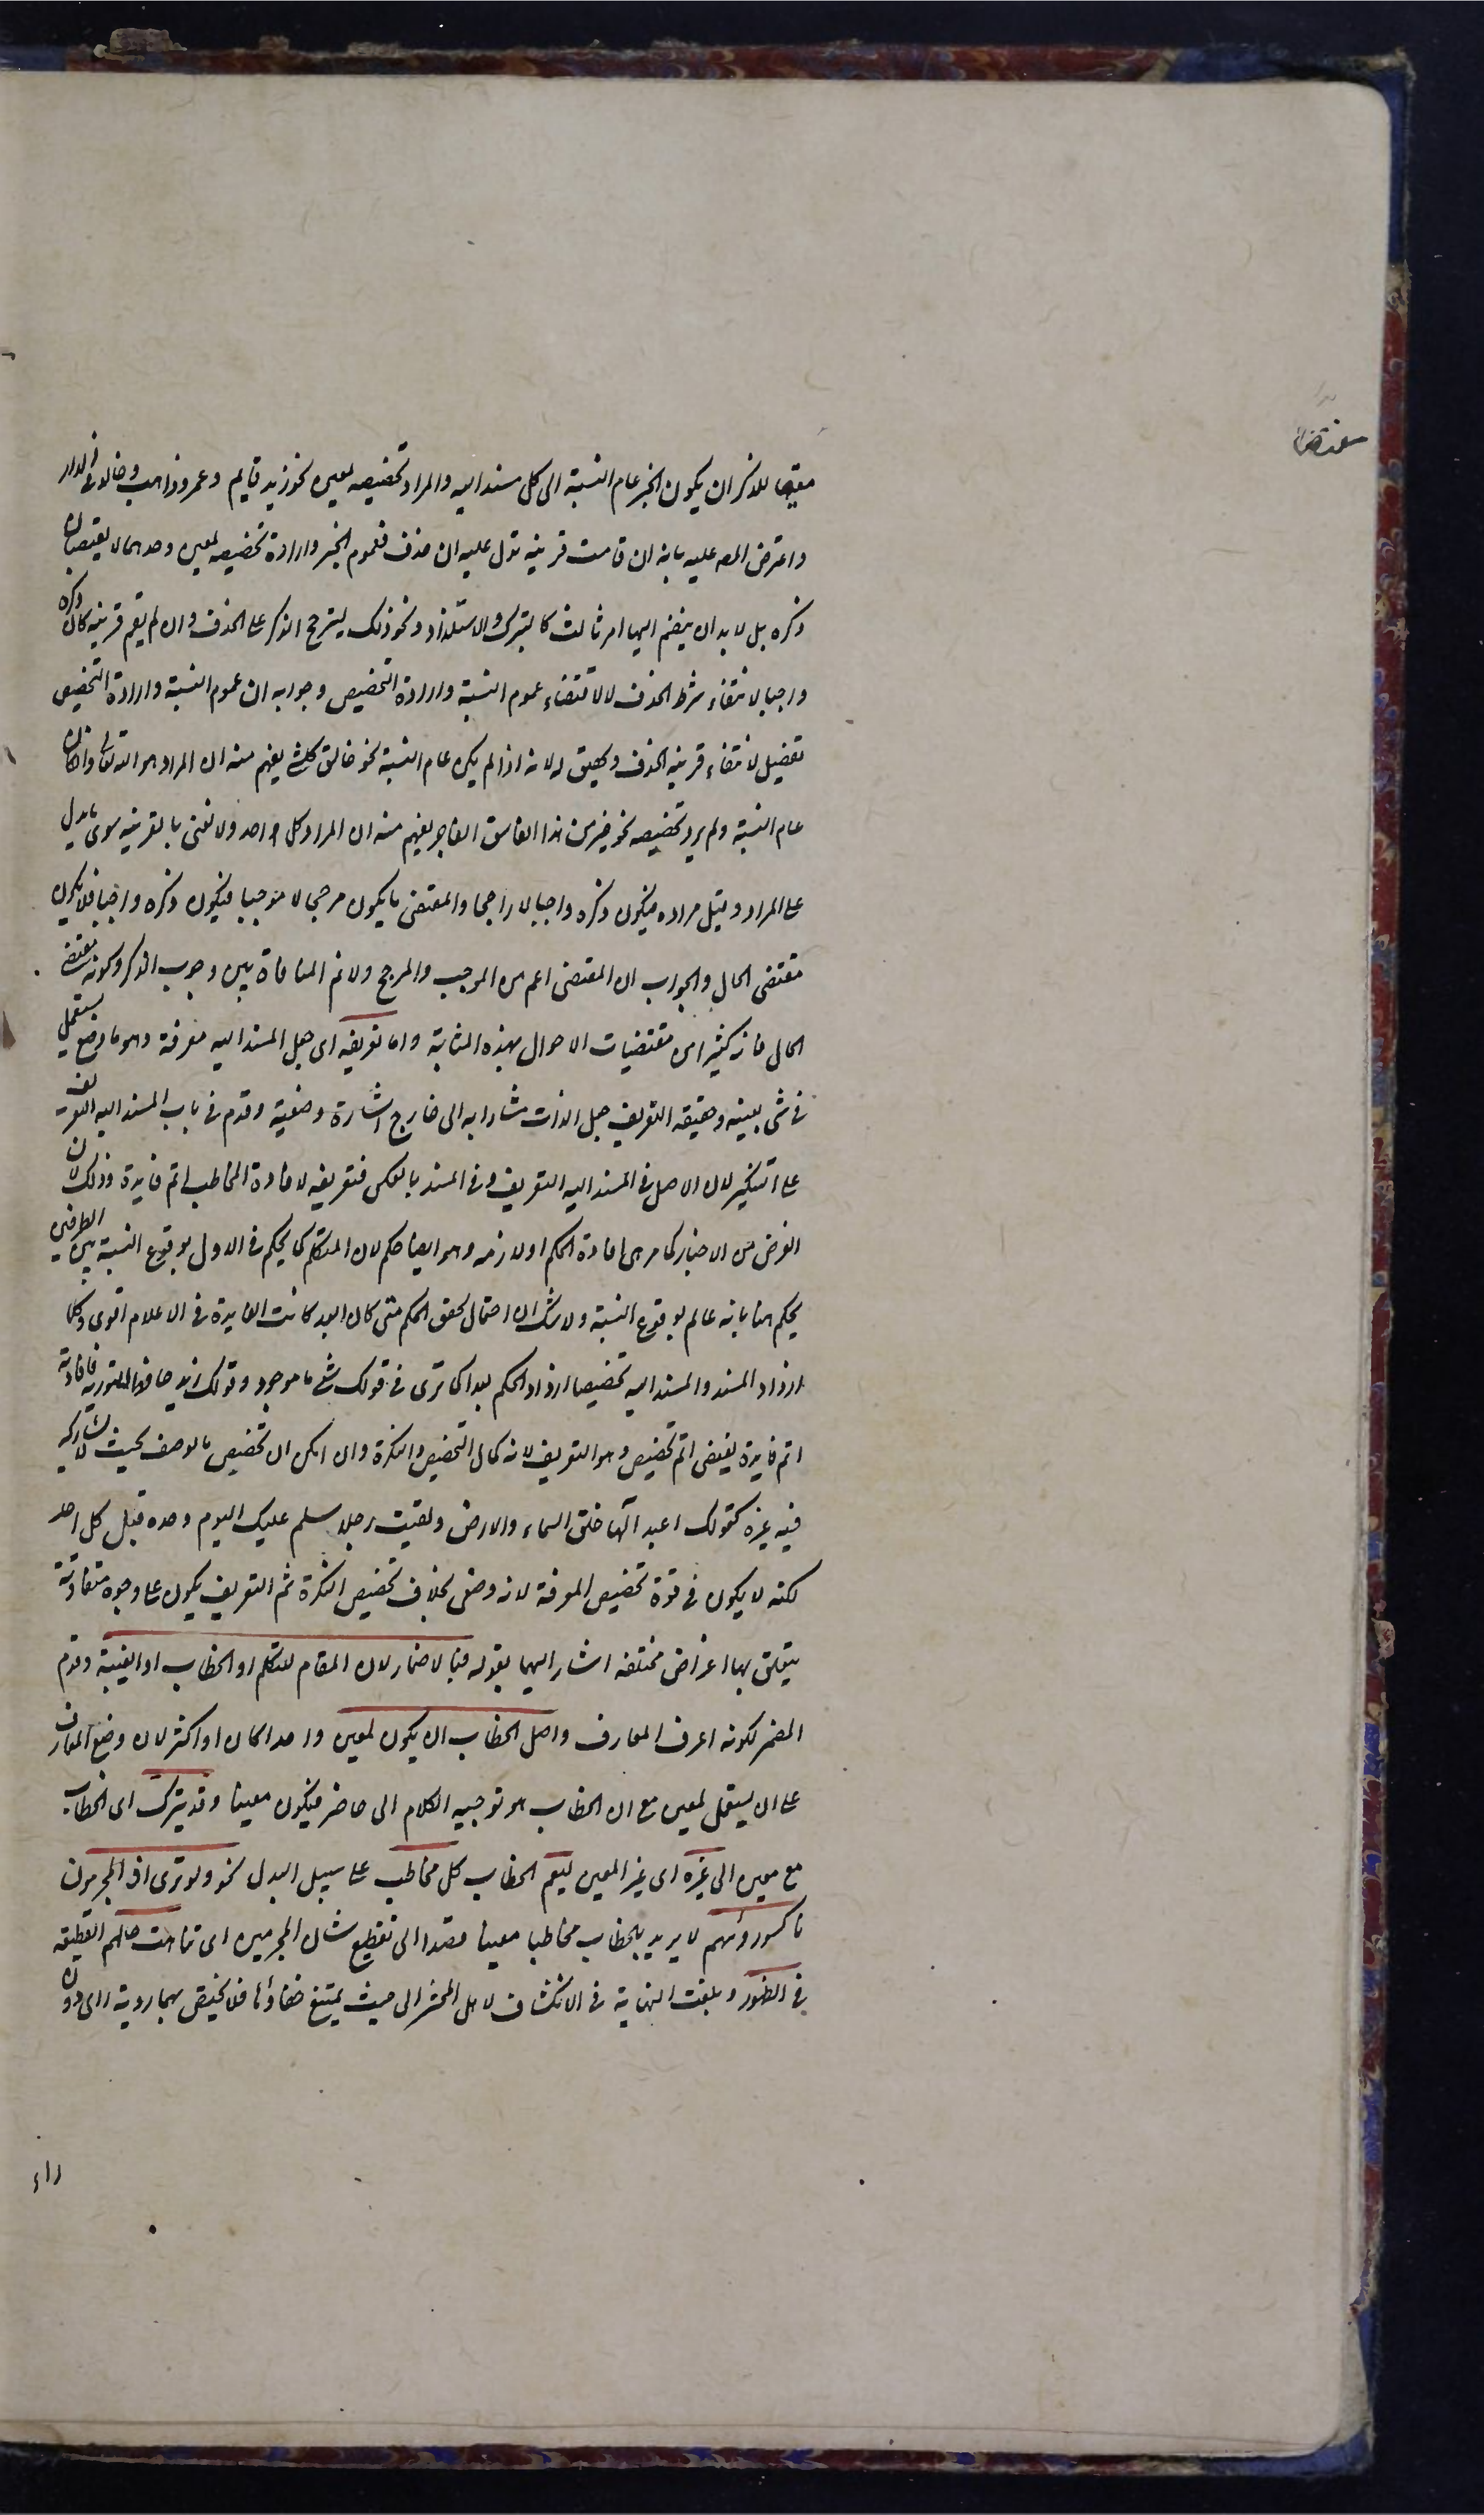 مقتضيا للذكر ان يكون الخبر عام النسبة الى كل مسند اليه والمراد تخصيصه لمعين نحو زيد قايم وعمرو ذاهب وخالد في الدار
واعترض المص عليه بانه ان قامت قرينة تدل عليه ان حذف فعموم الخبر وارادة تخصيصه لمعين وحدهما لا يقتضيان
ذكره بل لا بد ان ينضم اليهما امر ثالث كالتبرك والاستلذاذ ونحو ذلك ليترجح الذكر على الحذف وان لم يقم قرينة كان ذكره
واجبا لانتفاء شرط الحذف لا لاقتضاء عموم النسبة وارادة التخصيص وجوابه ان عموم النسبة وارادة التخصيص
تفصيل لانتفاء قرينة الحذف وتحقيق له لانه اذا لم يكن عام النسبة نحو خالق كل شئ يفهم منه ان المراد هو الله تعالى واذا كان
عام النسبة ولم يرد تخصيصه نحو خير من هذا الفاسق الفاجر يفهم منه ان المراد كل واحد ولا نعني بالقرينة سوى ما يدل
على المراد وقيل مراده فيكون ذكره واجبا لا راجحا والمقتضى ما يكون مرجحا لا موجبا فيكون ذكره واجبا فلا يكون
مقتضى الحال والجواب ان المقتضى اعم من الموجب والمرجح ولا نم المنافاة بين وجوب الذكر وكونه مقتضى
الحال فان كثيرا من مقتضيات الاحوال بهذه المثابة واما تعريفه اى جعل المسند اليه معرفة وهو ما وضع ليستعمل
في شئ بعينه وحقيقة التعريف جعل الذات مشارا به الى خارج اشارة وضعية وقدم في باب المسند اليه التعريف
على التنكير لان الاصل في المسند اليه التعريف وفي المسند بالعكس فتعريفه لافادة المخاطب اتم فايدة وذلك لان
الغرض من الاخبار كما مر هى افادة الحكم او لازمه وهو ايضا حكم لان المتكلم كما يحكم في الاول بوقوع النسبة بين الطرفين
يحكم هنا بانه عالم بوقوع النسبة ولا شك ان احتمال تحقق الحكم متى كان ابعد كانت الفايدة في الاعلام اقوى وكلما
ازداد المسند والمسند اليه تخصيصا ازداد الحكم بعدا كما ترى في قولك شئ ما موجود وقولك زيد حافظ للتورية فافادته
اتم فايدة يقتضى اتم تخصيص وهو التعريف لانه كمال التخصيص والنكرة وان امكن ان تخصص بالوصف بحيث لا يشاركه
فيه غيره كقولك اعبد آلها خلق السماء والارض ولقيت رجلا سلم عليك اليوم وحده قبل كل احد
لكنه لا يكون في قوة تخصيص المعرفة لانه وضعى بخلاف تخصيص النكرة ثم التعريف يكون على وجوه متفاوتة
يتعلق بها اغراض مختلفة اشار اليها بقوله فبالاضمار لان المقام للتكلم او الخطاب او الغيبة وقدم
المضمر لكونه اعرف المعارف واصل الخطاب ان يكون لمعين واحدا كان او اكثر لان وضع المعارف
على ان يستعمل لمعين مع ان الخطاب هو توجيه الكلام الى حاضر فيكون معينا وقد يترك اى الخطاب
مع معين الى غيره اى غير المعين ليعم الخطاب كل مخاطب على سبيل البدل نحو ولو ترى اذ المجرمون
ناكسوا رؤسهم لا يريد بالخطاب مخاطبا معينا قصدا الى تفظيع شان المجرمين اى تناهت حالهم الفظيعة
في الظهور وبلغت النهاية في الانكشاف لاهل المحشر الى حيث يمتنع خفاؤها فلا تختص بها روية راى دون
راء